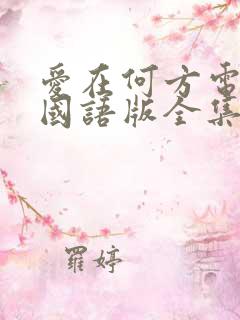 愛在何方電
國語版全集
羅婷